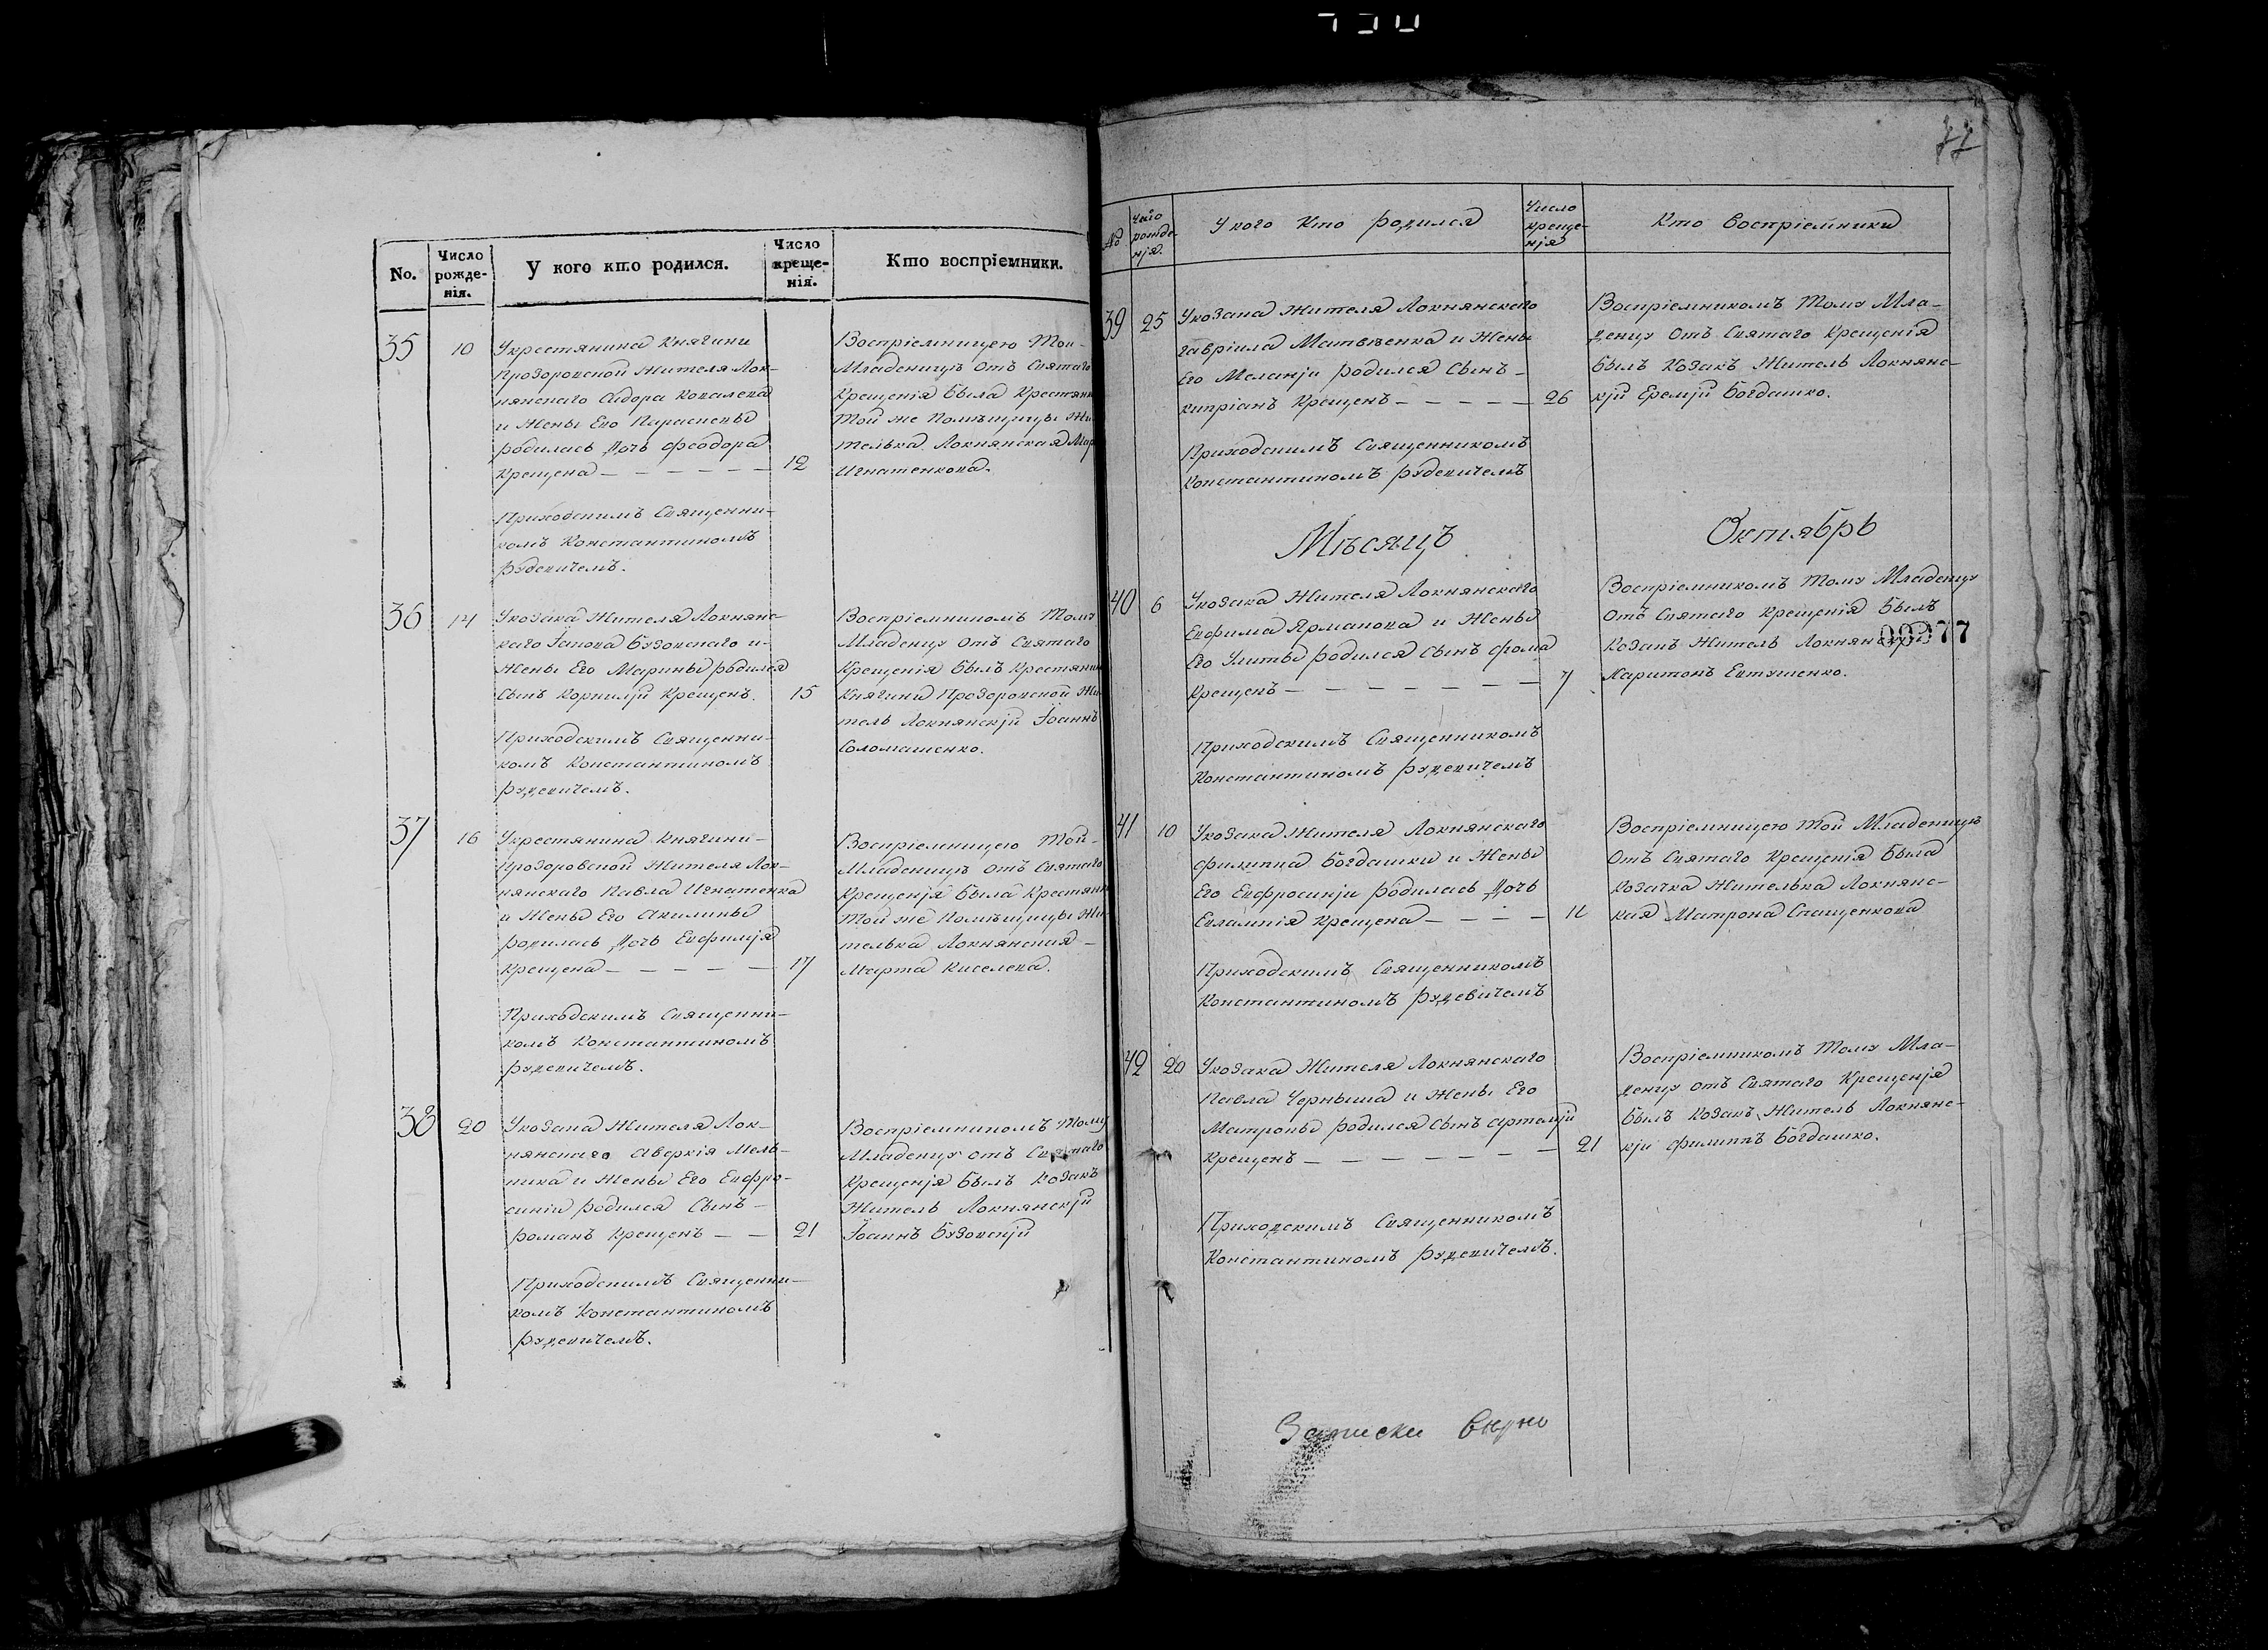 No.
Число рожде- нія.
У кого кто родился.
Число креще- нія.
Кто воспріемники.
35
10
Укрестянина Княгини
Прозоровской Жителя Лок-
нянскаго Сидора Ковалева
и Жены Его Параскевы
родилась Дочь Феодора
Крещена — — — — — —
12
Приходскимъ Священни-
комъ Константиномъ
Рудевичемъ.
Воспріемницею Той-
Младеницѣ отъ Святаго
Крещенія была Крестянк
Той же Помѣщицы Жи
телька Локнянская Мар
Игнатенкова.
36
14
Укозака Жителя Локнянс-
каго Іакова Бузовскаго и-
Жены Его Марины родился
Сынъ Корнилій Крещенъ.
15
Приходскимъ Священни-
комъ Константиномъ
Рудевичемъ.
Воспріемникомъ Тому
Младенцу отъ Святаго
Крещенія былъ Крестянин
Княгини Прозоровской Жи
тель Локнянскій Іоаннъ
Соломашенко.
37
16
Укрестянина Княгини-
Прозоровской Жителя Лок-
нянскаго Павла Игнатенка
и Жены Его Акилины
родилась Дочь Евфимія
Крещена — — — — —
17
Приходскимъ Священни-
комъ Константиномъ
Рудевичемъ.
Воспріемницею Той-
Младеницѣ отъ Святаго
Крещенія была Крестянк
Той же Помѣщицы Жи-
телька Локнянская-
Марта Киселева.
38
20
Укозака Жителя Лок-
нянскаго Аверкія Мель-
ника и Жены Его Евфро-
синіи родился Сынъ-
Романъ Крещенъ — —
21
Приходскимъ Священни-
комъ Константиномъ
Рудевичемъ.
Воспріемникомъ Тому
Младенцу отъ Святаго
Крещенія былъ Козакъ
Житель Локнянскій
Іоаннъ Бузовскій
77
№
Число рожде- нія.
У кого Кто родился
Число креще- нія
Кто Воспріемники
39
25
Укозака Жителя Локнянскаго
Гавріила Матвѣенка и Жены
Его Меланіи родился Сынъ-
Кипріанъ Крещенъ — — — — —
26
Приходскимъ Священникомъ
Константиномъ Рудевичемъ
Воспріемникомъ Тому Мла-
денцу Отъ Святаго Крещенія
былъ Козакъ Житель Локнянс-
кій Еремій Богдашко.
Мѣсяцъ
Октябрь
40
6
Укозака Жителя Локнянскаго
Евфима Ярмакова и Жены
Его Улиты родился Сынъ Фома
Крещенъ — — — — — — —
7
Приходскимъ Священникомъ
Константиномъ Рудевичемъ
Воспріемникомъ Тому Младенцу
Отъ Святаго Крещенія былъ
Козакъ Житель Локнянскій
Харитонъ Евтушенко.
00977
41
10
Укозака Жителя Локнянскаго
Филиппа Богдашки и Жены
Его Евфросиніи родилась Дочь
Евлампія Крещена — — — —
Приходскимъ Священникомъ
Константиномъ Рудевичемъ
Воспріемницею Той Младеницѣ
Отъ Святаго Крещенія была
Козачка Жителька Локнянс-
кая Матрона
42
20
Укозака Жителя Локнянскаго
Павла Черныша и Жены Его
Матроны родился Сынъ Артемій
Крещенъ — — — — — — —
21
Приходскимъ Священникомъ
Константиномъ Рудевичемъ.
Воспріемникомъ Тому Мла-
денцу отъ Святаго Крещенія
былъ Козакъ Житель Локнянс-
кій Филиппъ Богдашко.
Записки